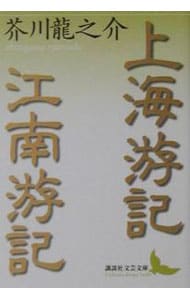 芥川龍之介
上海游記
江南游記
講談社文芸文庫